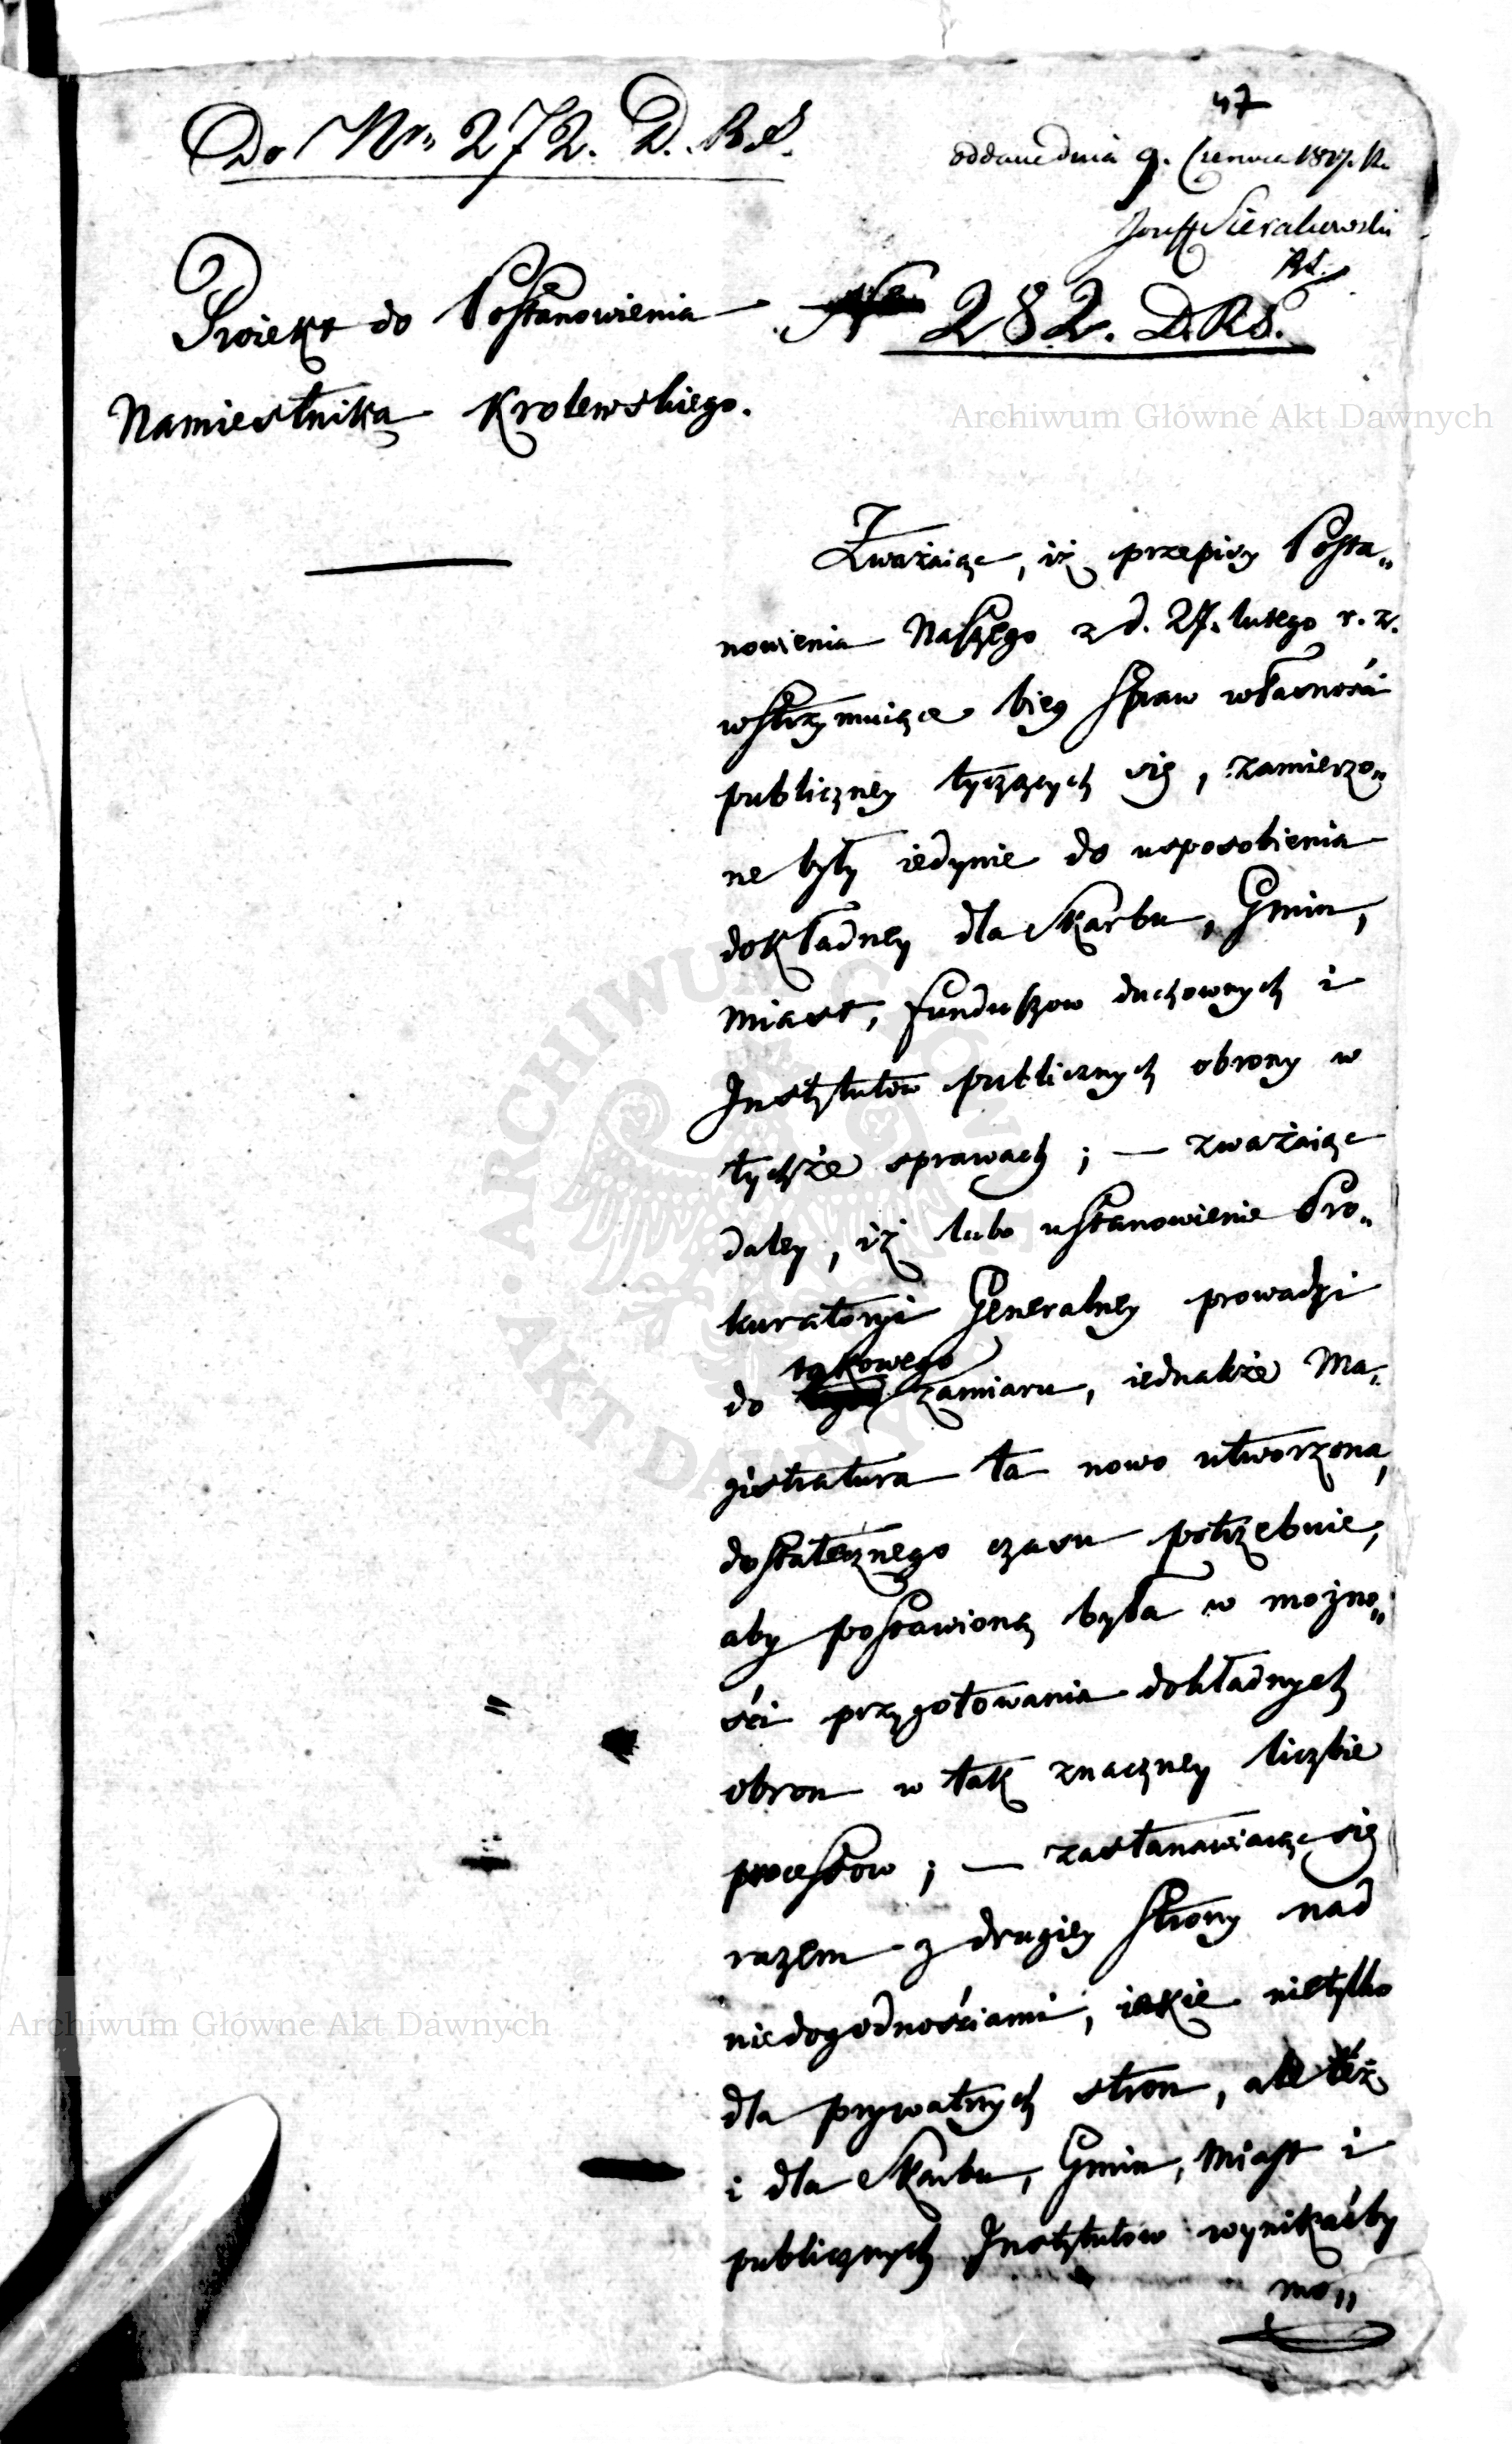 47
Do Nro 272. D. R. S.
oddane dnia 9. Czerwca 1817. R.
Józeff Sierakowski
RS.
Proiekt do Postanowienia
282. D.R.S.
Namiestnika Krolewskiego.
Archiwum Główne Akt Dawnych
Zważaiąc, iż przepisy Posta„
nowienia Naszego z d. 27. lutego r. z.
wstrzymuiące bieg spraw własności
publiczney tyczących się, zamierzo„
ne były iedynie do usposobienia
dokładney dla Skarbu, Gmin,
Miast, funduszow duchownych i
Instytutow publicznych obrony w
tychże sprawach; — zważaiąc
daley, iż lubo ustanowienie Pro„
kuratoryi Generalney prowadzi
takowego
do zamiaru, iednakże Ma„
gistratura ta nowo utworzona,
dostatecznego czasu potrzebuie,
aby postawioną była w możno„
ści przygotowania dokładnych
obron w tak znaczney liczbie
processow; — zastanawiaiąc się
razem z drugiey strony nad
niedogodnościami, iakie nietylko
dla prywatnych stron, ale też
i dla Skarbu, Gmin, Miast i
publicznych Instytutow wynikaćby
mo„
Archiwum Główne Akt Dawnych
ARCHIWUM GŁÓWNE AKT DAWNYCH